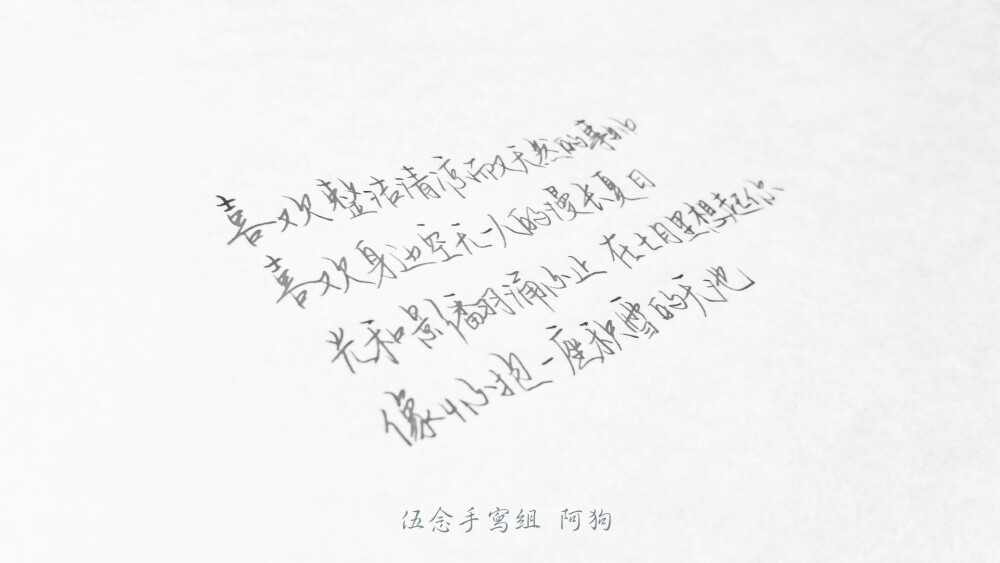 喜欢整洁清凉而又天然的事物
喜欢身边空无一人的漫长夏日
光和影翻涌不止 在七月里想起你
像怀抱一座积雪的天池
伍念手寫组 阿狗